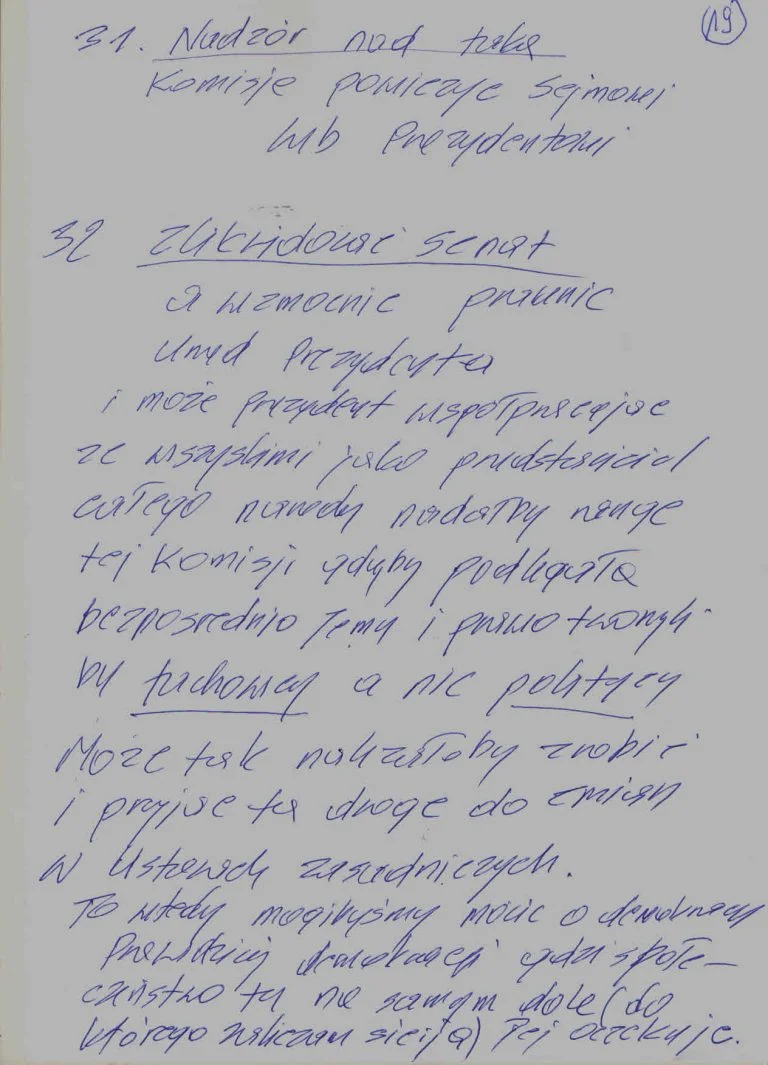 19
31. Nadzór nad taką
Komisję powiezyc Sejmowi
lub Prezydentowi
32 Zlikwidować Senat
a wzmocnic prawnic
Urząd Prezydenta
i może prezydent współpracując
ze wszyskimi jako przedstawiciel
całego narodu nadałby rangę
tej Komisji gdyby podlegała
bezpośrednio Jemu i prawo tworzyli
by fachowcy a nie politycy
Może tak należałoby zrobić
i przyjąc tą drogę do zmian
w Ustawach zasadniczych.
To wtedy moglibyśmy mówic o demokracji
Prawdziwej demokracji gdzi społe-
czeństwo tu na samym dole (do
którego zaliczam się i ja) Jej oczekuje.